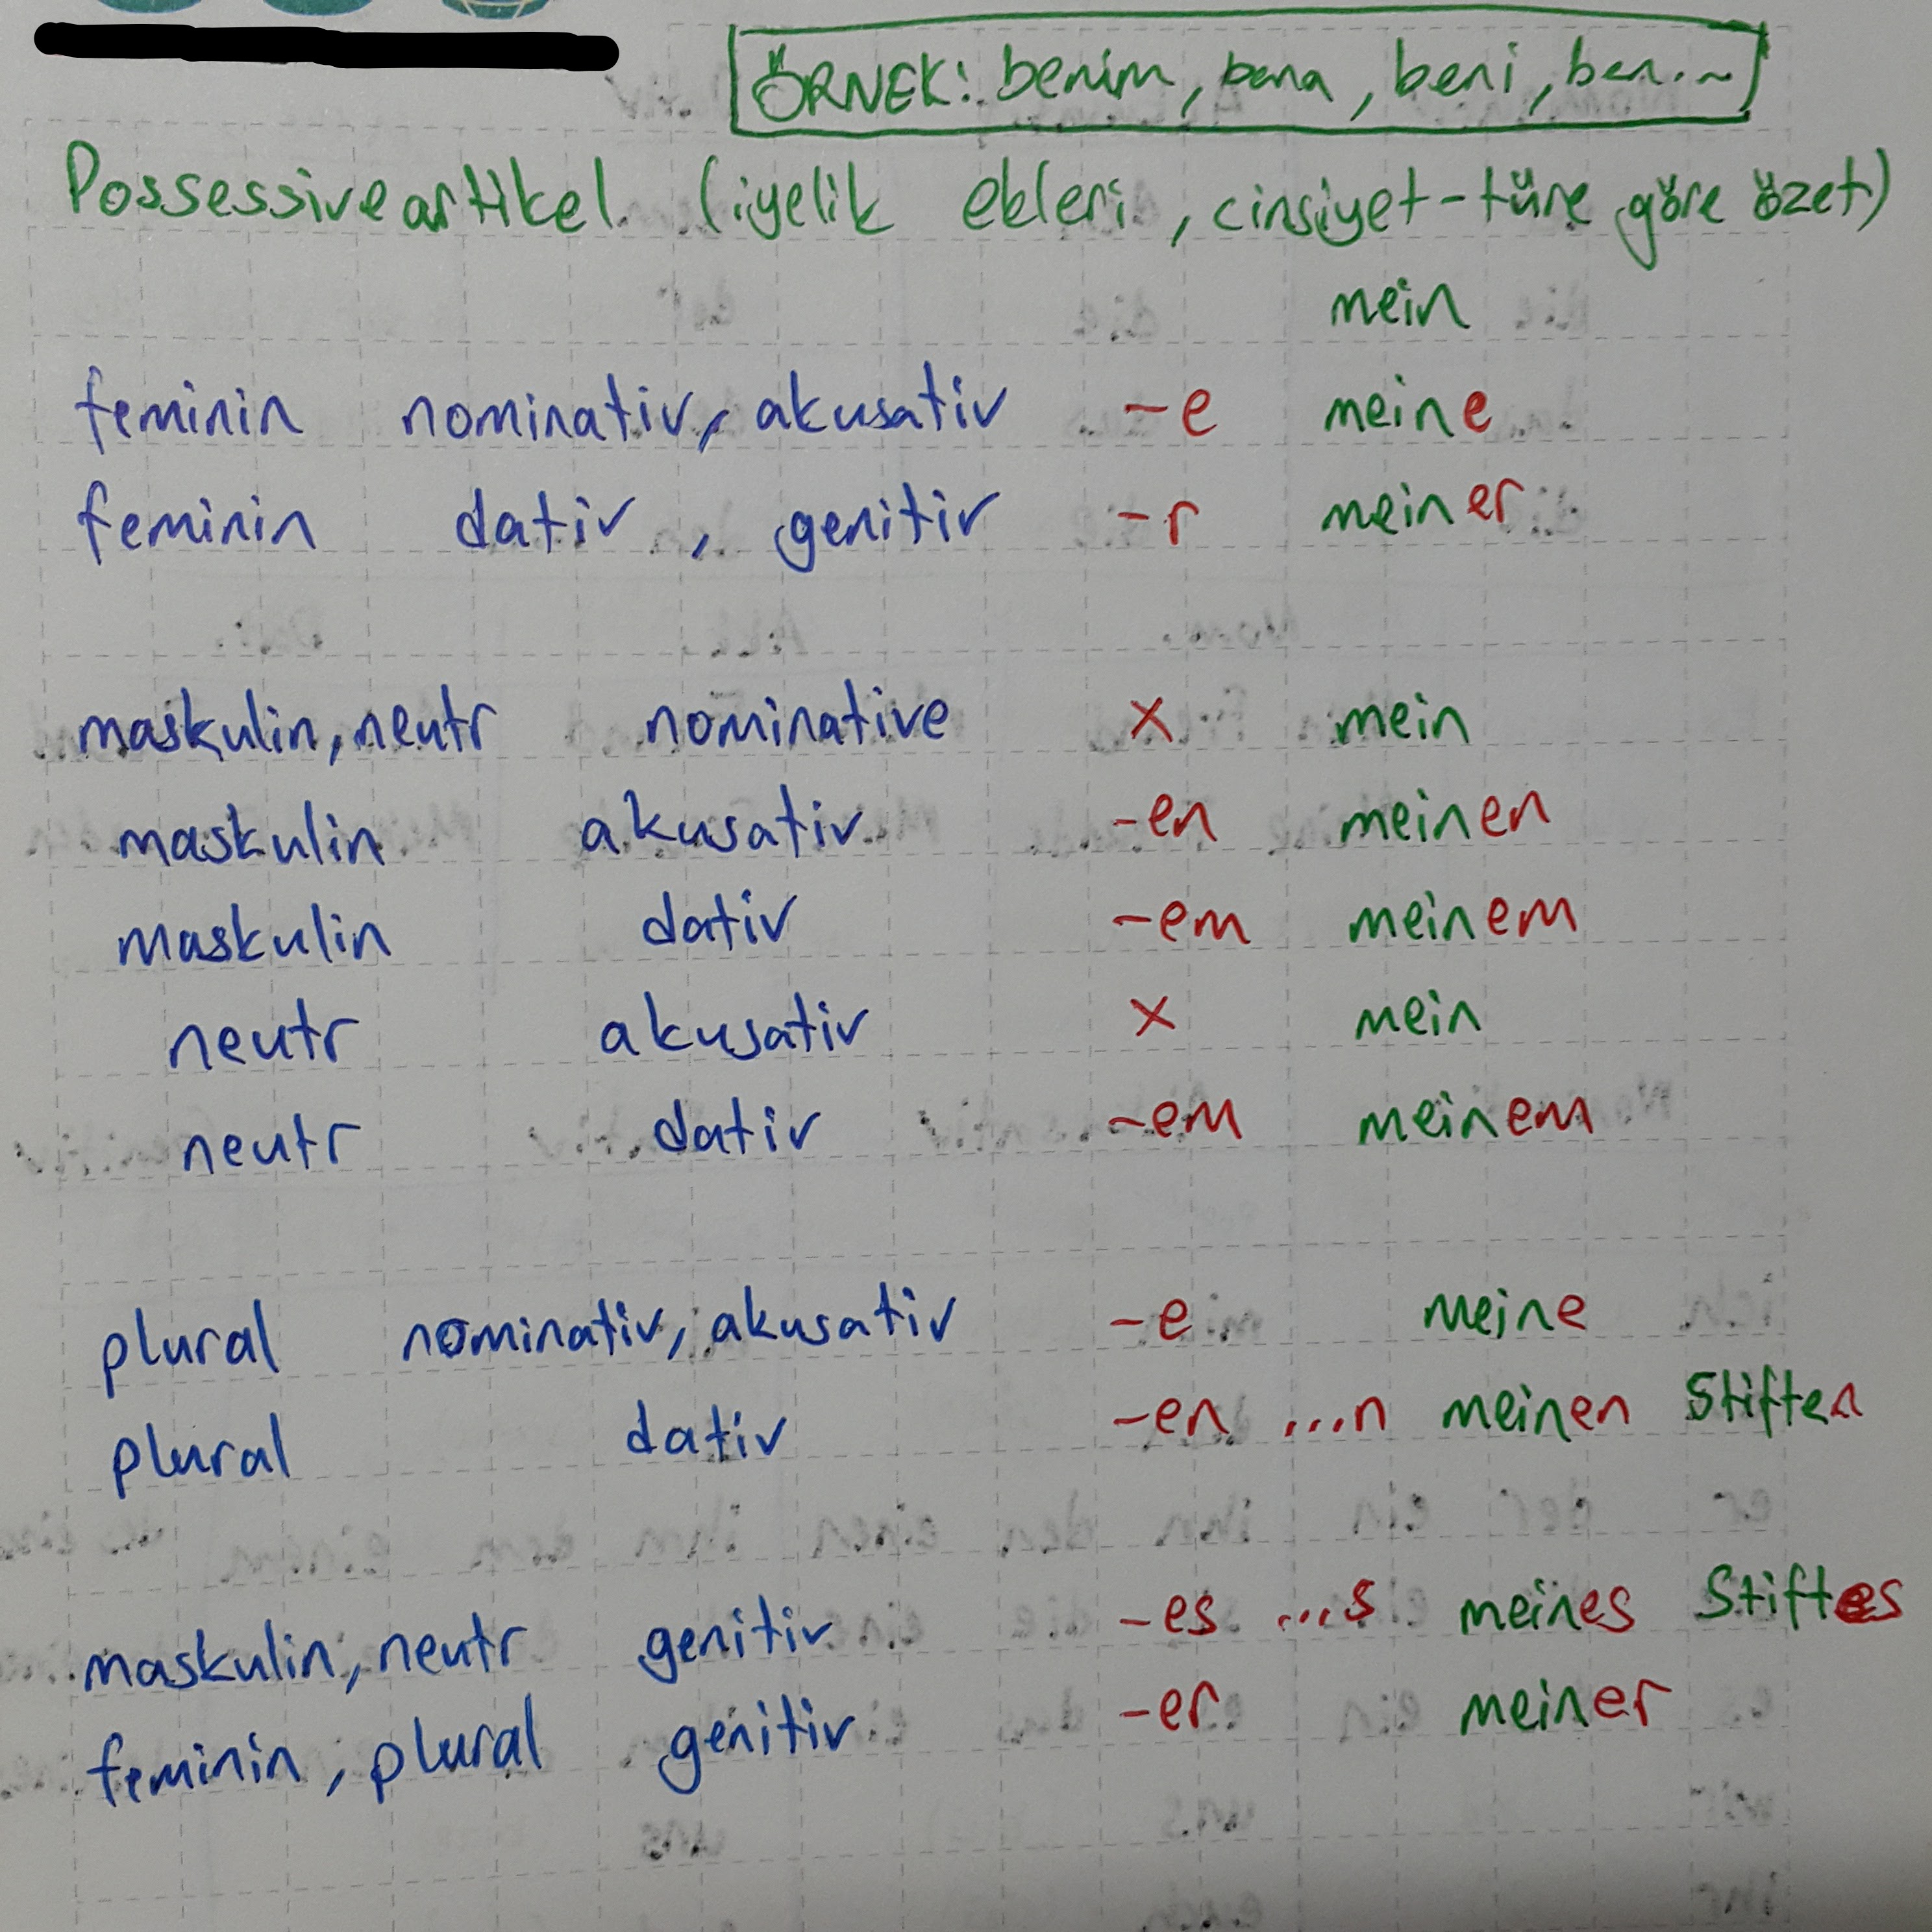 ÖRNEK: benim, bana, beni, ben..~
Possessiveartikel (iyelik ekleri, cinsiyet-türe göre özet)
mein
feminin nominativ, akusativ -e meine
feminin dativ, genitiv -r meiner
maskulin, neutr nominative x mein
maskulin akusativ -en meinen
maskulin dativ -em meinem
neutr akusativ x mein
neutr dativ -em meinem
plural nominativ, akusativ -e meine
plural dativ -en ...n meinen Stiften
maskulin, neutr genitiv -es ...s meines Stiftes
feminin, plural genitiv -er meiner